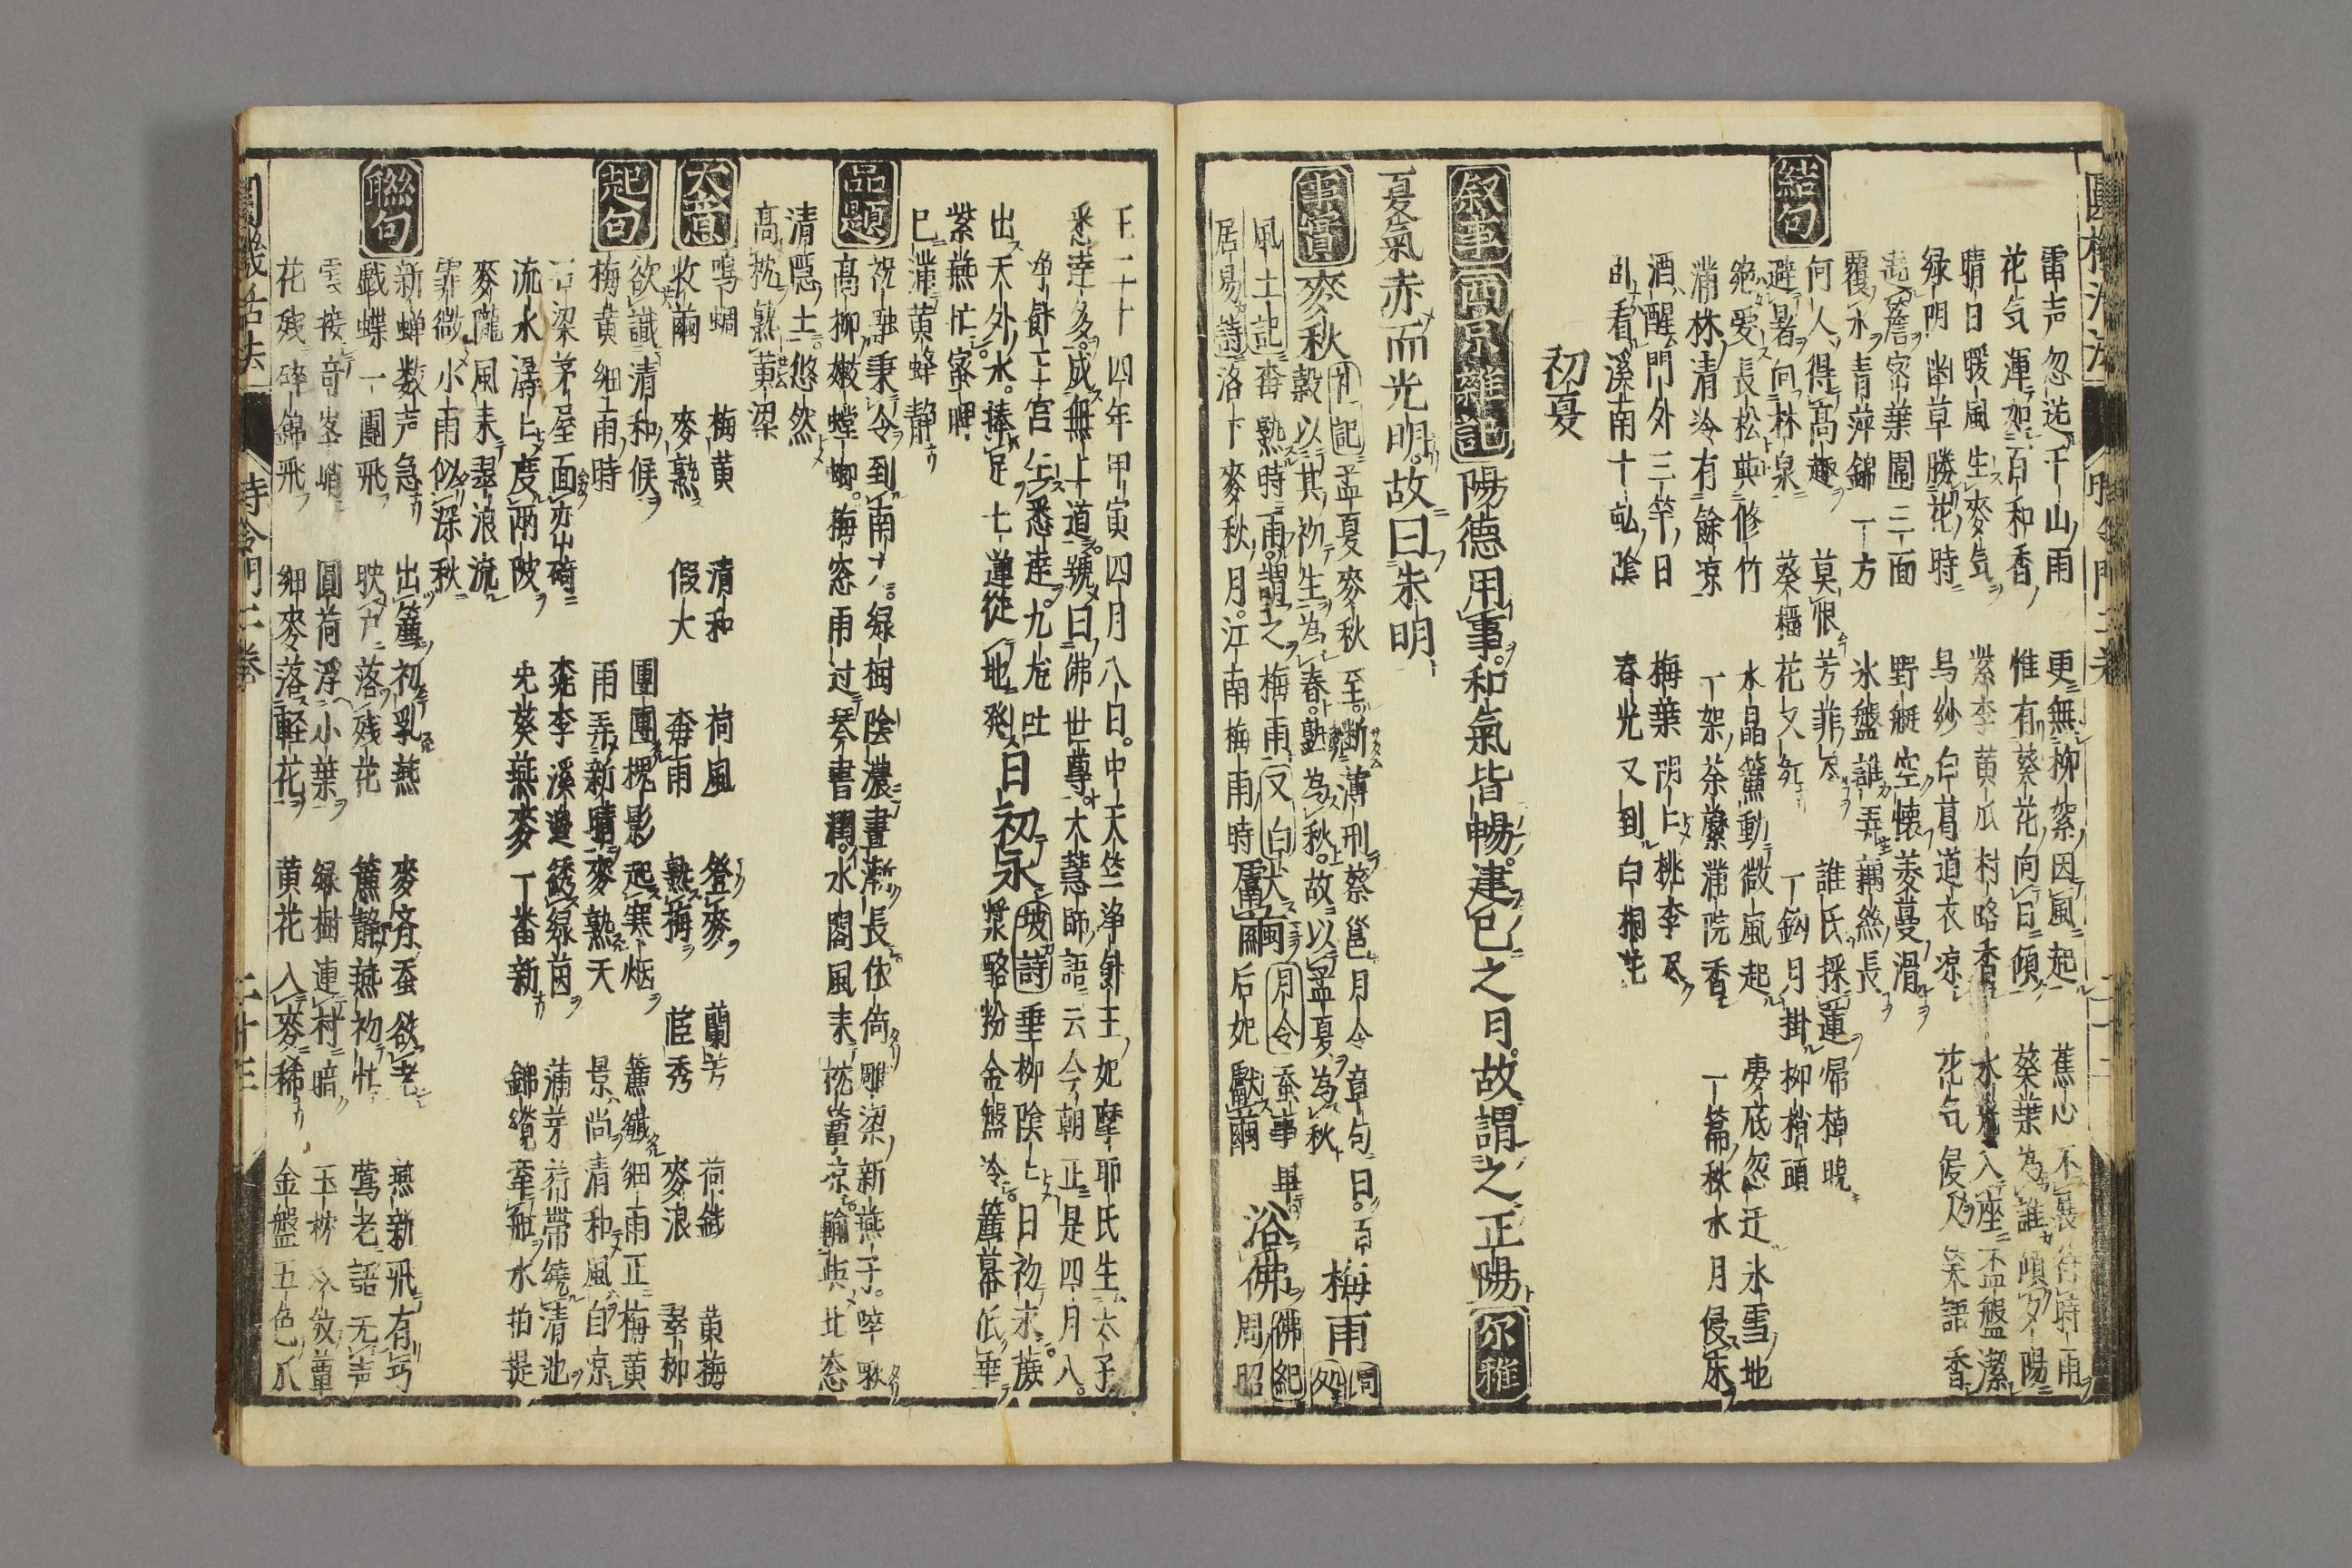 雷声忽送千山雨 更無柳絮因風起 蕉心不展待時雨
花気渾如百和香 惟有葵花向日傾 葵葉為誰傾夕陽
晴日暖風生麦気 紫李黄瓜村路香 水入座盃盤潔
緑阴幽草勝花時 烏紗白葛道衣凉 花气侵人笑語香
結句 遶簷密葉圍三面 野艇空懐菱蔓滑
覆水青萍錦一方 氷盤誰弄藕絲長
何人得高趣 莫恨芳菲尽 誰氏採蓮帰棹晚
避暑向林泉 葵榴花又紅 一鈎月掛柳梢頭
絶愛長松與修竹 水晶簾動微風起 夢底忽迂氷雪地
滿林清冷有餘凉 一架荼䕷滿院香 一篇秋水月侵床
酒醒門外三竿日 梅葉阴阴桃李尽
臥看溪南十畝陰 春光又到白桐花
初夏
叙事 西京雜記 陽德用事和氣皆暢建巳之月故謂之正陽 尔雅
夏氣赤而光明故曰朱明
事實 麥秋 礼記 孟夏麥秋至断薄刑蔡邕月令章句曰百
穀以其初生為春熟為秋故以孟夏為秋 梅雨
風土記 熟時雨謂之梅雨 又白 月令 蚕事畢 浴佛 佛紀
居易詩 洛下麥秋月江南梅雨時 后妃獻繭 周昭
王二十四年甲寅四月八日中天竺淨飰王妃摩耶氏生太子
悉達多成無上道號曰佛世尊 大慧師語云今朝正是四月八
淨飰王宮生悉達九龙吐
出天外水捧足七蓮從地発 日初永 坡詩 垂柳陰陰日初永蔗
漿酪粉金盤冷簾幕低垂
紫燕忙蜜脾
已滿黄蜂静
品題 祝融秉令到南方緑樹陰濃晝漸長依倚雕梁新燕子啅
高柳嫩螳螂梅窓雨过琴書潤水閣風来枕簟凉輸與北窓
清隠士悠然
高枕熟黄梁
大意 鳴蜩 梅黄 清和 荷風 登麥 蘭芳 荷錢 黄梅
收繭 麥熟 假大 海雨 熟梅 苣秀 麥浪 翠柳
起句 欲識清和候 團團槐影起寒烟 簾纖細雨正梅黄
梅黄細雨時 雨弄新晴麥熟天 景尚清和風自凉
梁茅屋面 桃李溪邉綉緑茵 蒲芽荇帶繞清池
流水潺上度兩陂 兎葵燕麥一畨新 錦纜牽舡水拍提
麥隴風来翠浪流
霏微小雨似深秋
聯句 新蝉数声急 出簾初乳燕 麥齐蚕欲老 燕新飛有巧
戯蝶一團飛 映户落残花 簾静燕初忙 莺老語无声
雲接奇峯峭 圓荷浮小葉 緑樹連村暗 玉枕簟
花残碎錦飛 細麥落輕花 黄花入麥稀 金盤五色瓜